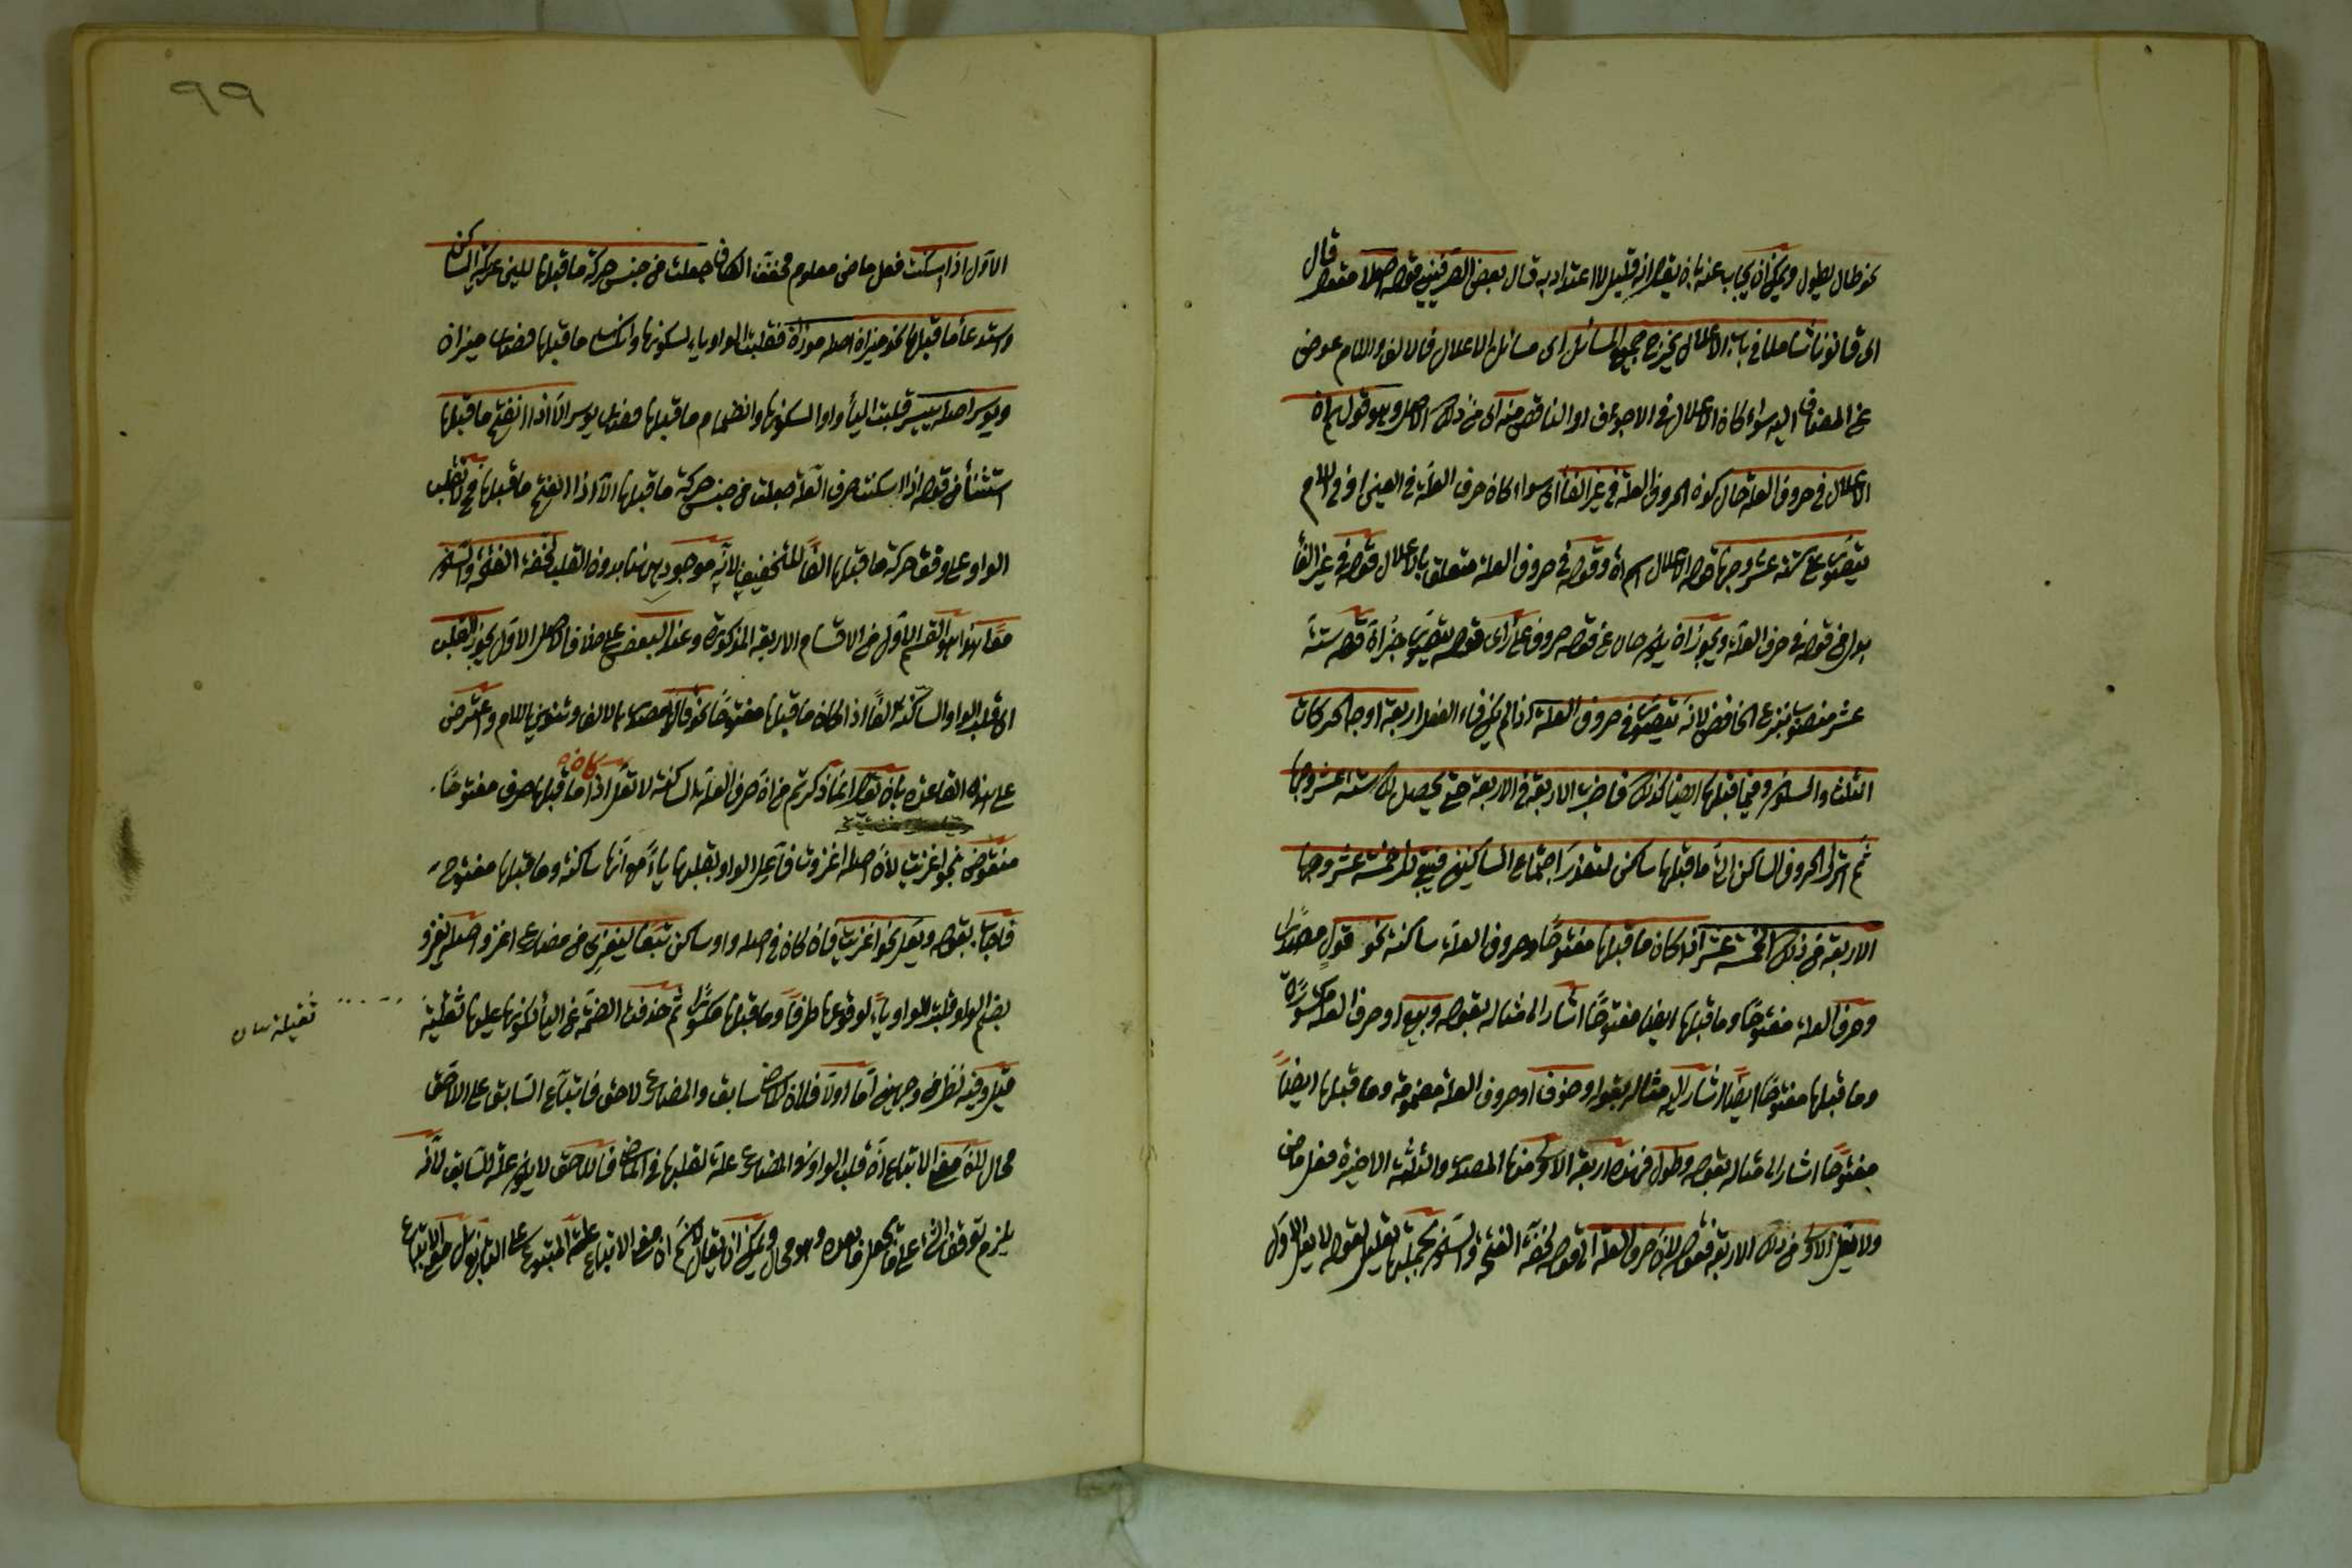 نحو طال يطول ويمكن ان يجاب عنه بان يقال انه قليل لا اعتداد به قال بعض الصرفيين قوله اصلا مفعول قال
اى قانونا شاملا فى باب الاعلال يخرج جميع المسائل اى مسائل الاعلال فالالف واللام عوض
عن المضاف اليه سواء كان الاعلال فى الاجوف او الناقص منه اى من ذلك الاصل وهو قولهم ان
الاعلال فى حروف العلة حال كون الحروف العلة فى غير الفاء اى سواء كان حرف العلة فى العين او فى اللام
يتصور على ستة عشر وجها قوله الاعلال اسم ان وقوله فى حروف العلة متعلق بالاعلال قوله فى غير الفاء
بدل من قوله فى حرف العلة ويجوز ان يكون حال عن قوله حروف على رأى قوله يتصور خبر ان قوله ستة
عشر منصوب بنزع الخافض لانه يتصور فى حروف العلة اذا لم يكن فاء الفعل اربعة اوجه الحركات
الثلث والسكون وفيما قبلها ايضا كذلك فاضرب الاربعة فى الاربعة حتى يحصل لك ستة عشر وجها
ثم اترك الحروف الساكن التى ما قبلها ساكن لتعذر اجتماع الساكنين فبقى لك خمسة عشر وجها
الاربعة من ذلك الخمسة عشر اذا كان ما قبلها مفتوحا وحروف العلة ساكنة نحو قول مصدرا
وحرف العلة مفتوحا وما قبلها ايضا مفتوحا اشار الى مثاله بقوله وبيع او حرف العلة مكسورة
وما قبلها مفتوحا ايضا اشار اليه مثاله بقوله وخوف او حروف العلة مضمومة وما قبلها ايضا
مفتوحا اشار الى مثاله بقوله وطول فهذه اربعة الاولى منها المصدر والثلثة الاخيرة فعل ماض
ولا يعل الاولى من ذلك الاربعة فقوله لان حرف العلة الى قوله لخفة الفتحة والسكون بجملتها تعليل لقوله لا يعل الاول
٩٩
الاول اذا اسكنت فعل ماض معلوم مخفف الكاف جعلت من جنس حركة ما قبلها للين عريكة الساكن
واستدعاء ما قبلها نحو ميزان اصله موزان فقلبت الواو ياء لسكونها وانكسار ما قبلها فصار ميزان
ويوسر اصله ييسر قلبت الياء واوا لسكونها وانضمام ما قبلها فصار يوسر الا اذا انفتح ما قبلها
استثناء من قوله اذا اسكنت حرف العلة جعلت من جنس حركة ما قبلها الا اذا انفتح ما قبلها فح لا تقلب
الواو على وفق حركة ما قبلها الفا للتخفيف لانه موجود ههنا بدون القلب لخفة الفتحة والسكون
معا هذا هو القسم الاول من الاقسام الاربعة المذكورة وعند البعض على خلاف الاصل الاول يجوز القلب
اى قلب الواو الساكنة الفا اذا كان ما قبلها مفتوحا نحو قال مصدر بالالف وتنوين اللام واعترض
على هذه القاعدة بان يقال انما ذكرتم من ان حرف العلة الساكنة لا تعل اذا كان ما قبلها حرف مفتوحا
منقوض بنحو اغزيت لان اصله اغزوت فاعل الواو بقلبها ياء مع انها ساكنة وما قبلها مفتوح
فاجاب بقوله ويعل نحو اغزيت فان كان فى اصله واو ساكن تبعا ليغزى من مضارع اغزو اصله يغزو
بضم الواو قلبت الواو ياء لوقوعها طرفا وما قبلها مكسورا ثم حذفت الضمة عن الياء لكونها عليها ثقيلة
ثقيلة
قيل وفيه نظر من وجهين اما اولا فلان الماضى سابق والمضارع لاحق فاتباع السابق على اللاحق
محال لان معنى الاتباع ان قلب الواو فى المضارع علة لقلبها فى الماضى فاللاحق لا يكون علة للسابق لانه
يلزم توقف الشئ على ما يحصل بعده وهو محال ويمكن ان يقال لانم ان معنى الاتباع علة المتبوع على التابع بل معنى الاتباع